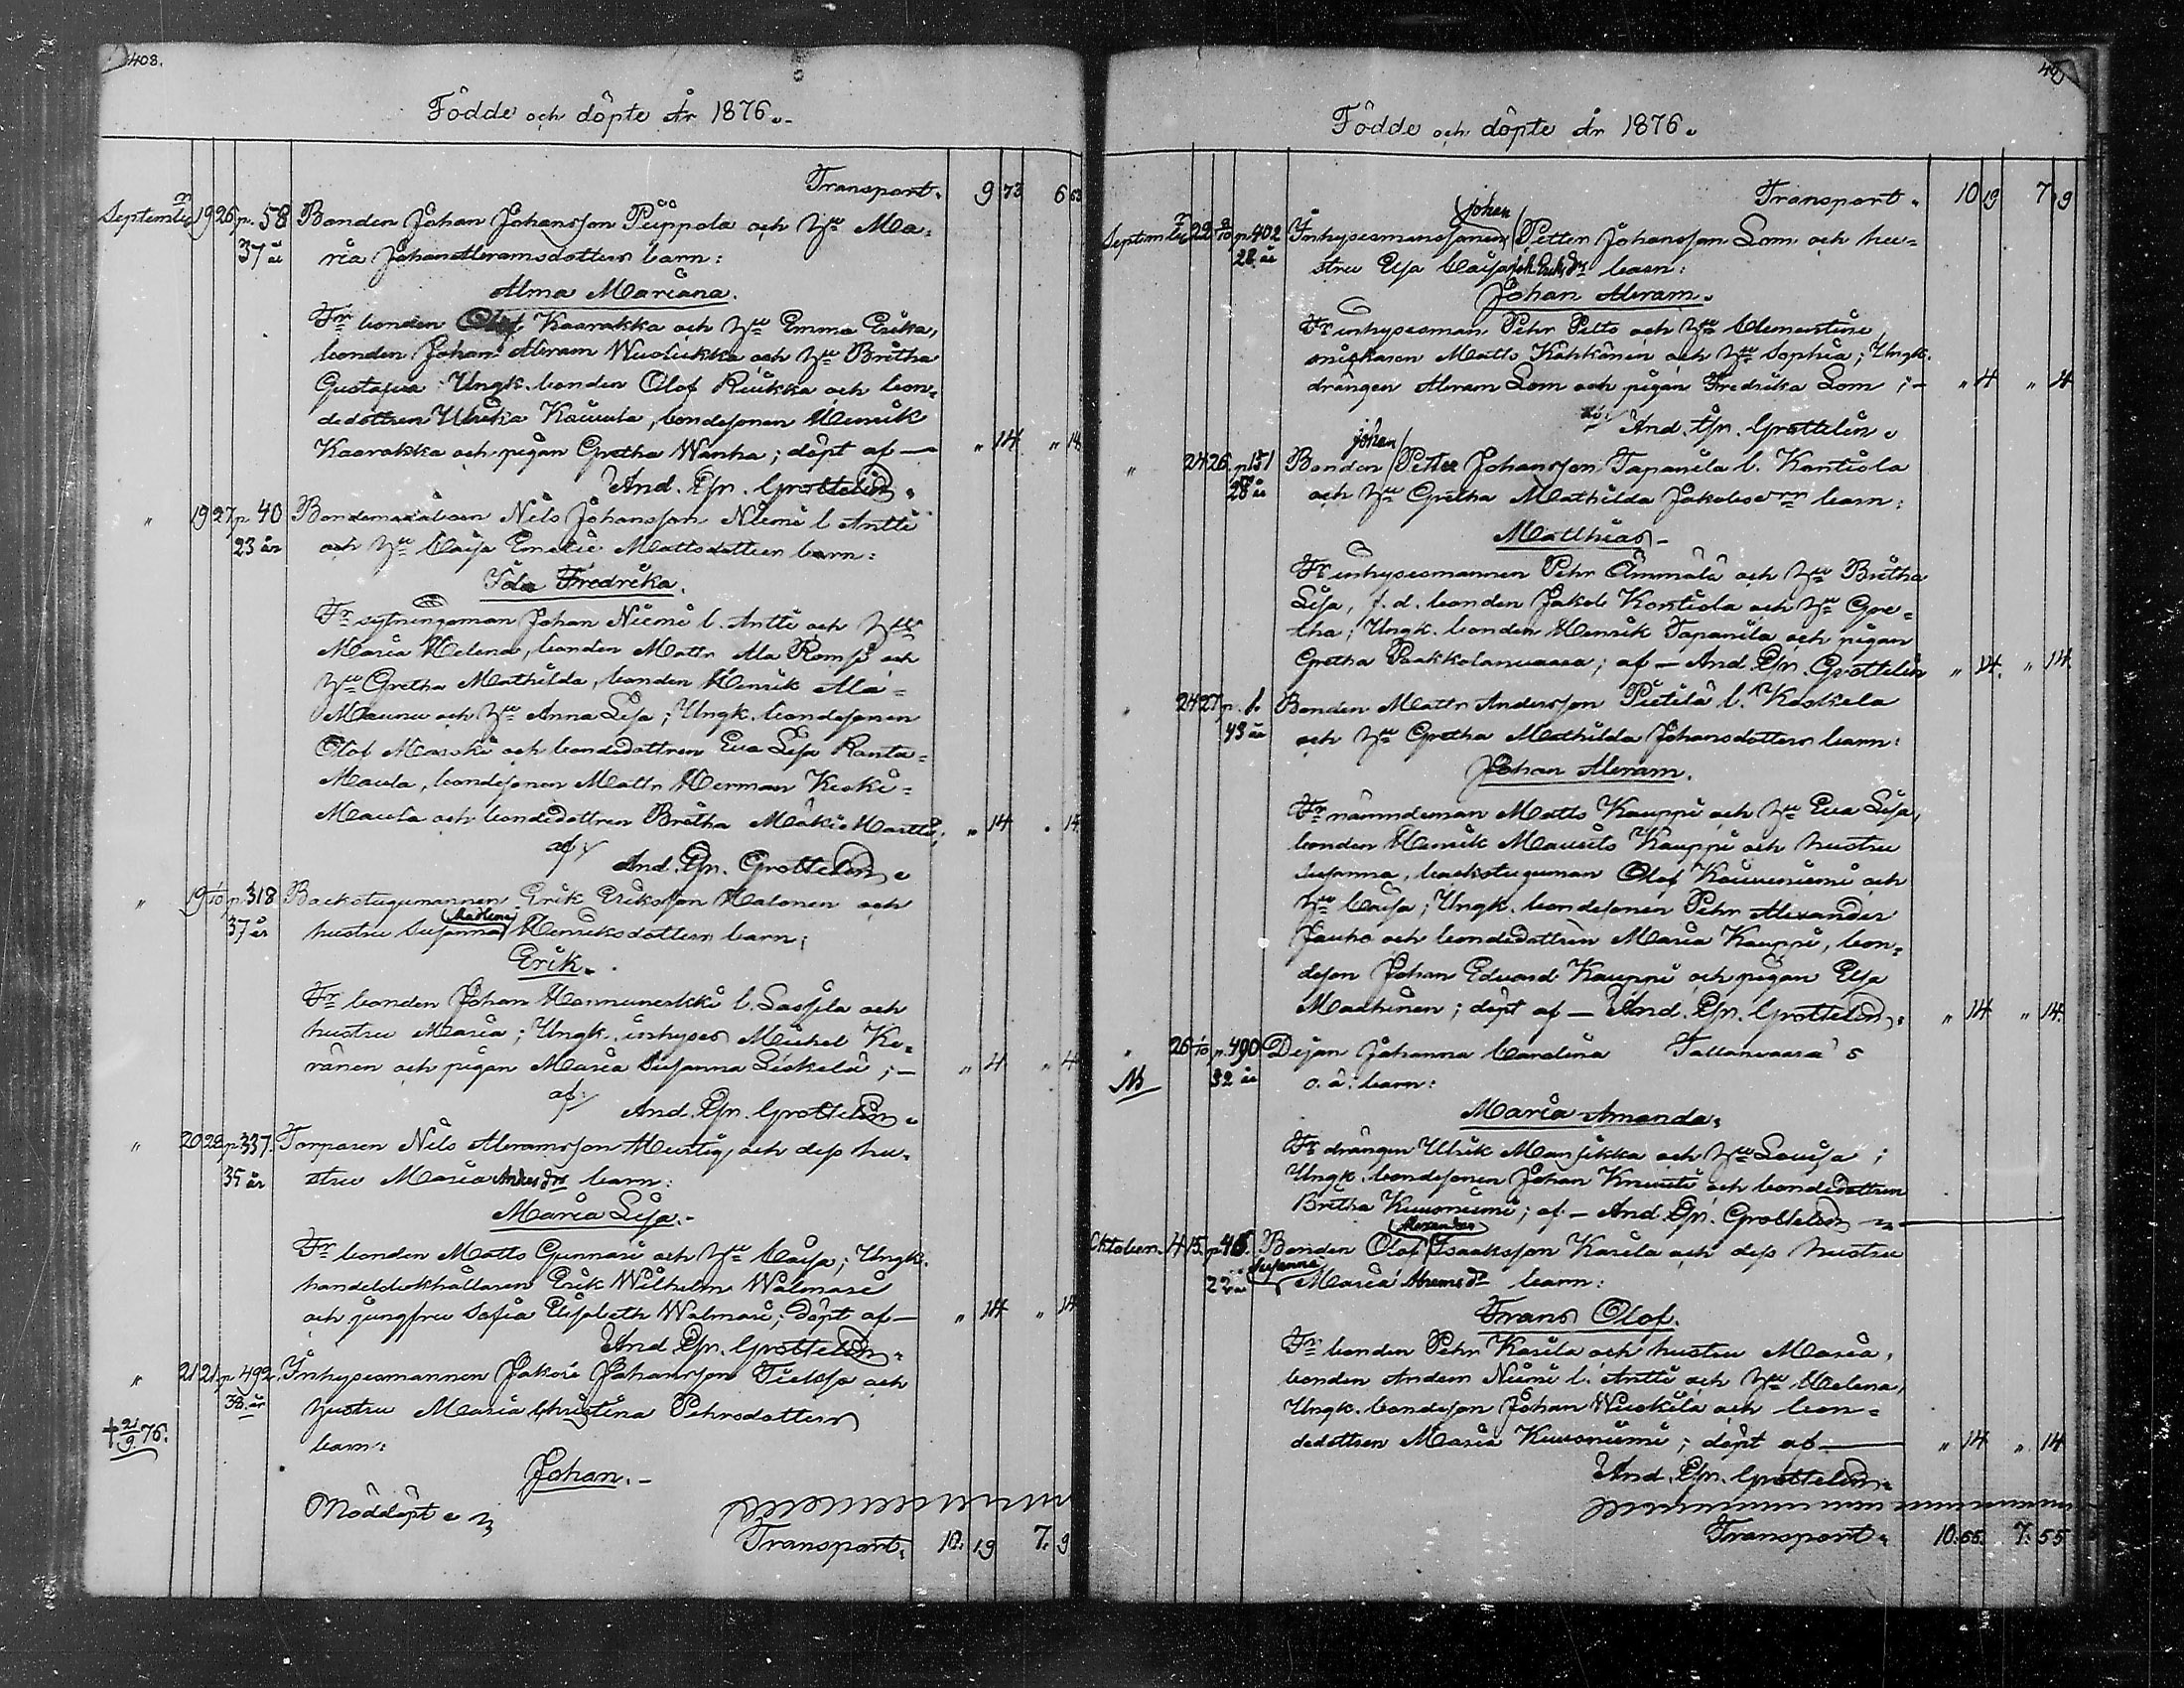 408.
Födde och döpte År 1876.
Transport. 9 73 6 63
September 19 26 p. 58 Bonden Johan Johansson Piippola och h:u Ma-
37 år ria Johan Abramsdotters barn:
Alma Mariana.
Fr bonden Olof Kaarakka och h:u Emma Erika,
bonden Johan Abram Wuolukka och h:u Britha
Gustafva; Ungk. bonden Olof Riukka och bon-
dedottren Ulrika , bondesonen Henrik
Kaarakka och pigan Gretha Wanha; döpt af — " 14 " 14
And. Grottelin.
" 19 27 p. 40 BondemåAbsen Nils Johansson Niemi l. Antti
23 år och h:u Caisa Emelie Mattsdotters barn:
Ida Fredrika.
Fr sytningsman Johan Niemi l. Antti och h:u
Maria Helena, bonden Matts Ala Romsi och
h:u Gretha Mathilda, bonden Henrik Ala-
Maunu och h:u Anna Lisa; Ungk. bondesonen
Olof och bondedottren Eva Lisa Ranta-
Maula, bondesonen Matts Herman Keski-
Maula och bondedottren Britha Mäki Martti; " 14 " 14
af
And. Grottelin.
" 19 1/10 p. 318 Backstugumannen Erik Eriksson Halonen och
Madlena
37 år hustru Susanna Henriksdotters barn:
Erik.
Fr bonden Johan l. Sassila och
hustru Maria; Ungk. inhyses Mickel Ke-
ränen och pigan Maria Susanna Liskilä; — " 4 " 4
af:
And. Grottelin.
" 20 28 p. 337. Torparen Nils Abramsson Hurtig och dess hu-
35 år stru Maria Anders dr barn:
Maria Lisa.
Fr bonden Matts Gunnari och h:u Caisa; Ungk.
handelsbokhållaren Erik Wilhelm Walmari
och jungfru Sofia Elisabeth Walmari; Döpt af — " 14 " 14
And. Grottelin.
" 21 21 p. 492. Inhysesmannen Jakob Johansson Tieksja och
38 år hustru Maria Christina Pehrsdotters
† 21/9 76. barn:
Johan. —
Nöddöpt.
Transport. 10. 19 7. 9
Födde och döpte År 1876.
Transport. 10 19 7 9
Johan
September 22 p. 402 Inhysesmanssonen Petter Johansson Lom och hu-
28 år stru Elsa Caisa Joh. Eriks dr barn:
Johan Abram.
Fr inhysesman Pehr Pelto och h:u Clementine,
snickaren Matts Kähkönen och h:u Sophia; Ungk.
drängen Abram Lom och pigan Fredrika Lom; — " 4 " 4
af: And. Grottelin.
Johan
" 24 26 p. 151 Bonden Petter Johansson Tapanila l. Kontiola
28 år och h:u Gretha Mathilda Jakobs barn:
Matthias —
Fr inhysesmannen Pehr Ämmälä och h:u Britha
Lisa, f. d. bonden Jakob Kontiola och h:u Gre-
tha; Ungk. bonden Henrik Tapanila och pigan
Gretha Paakkolanvaara; af — And. Grottelin " 14 " 14
" 24 27 p. Bonden Matts Andersson Pietilä l. Keskela
43 år och h:u Gretha Mathilda Johansdotters barn:
Johan Abram.
Fr nämndeman Matts Kauppi och h:u Eva Lisa,
bonden Henrik Maurits Kauppi och hustru
Susanna, backstuguman Olof och
h:u Caisa; Ungk. bondesonen Pehr Alexander
Jauho och bondedottren Maria Kauppi, bon-
deson Johan Edvard Kauppi och pigan Elsa
; döpt af — And. Grottelin. " 14 " 14
" 26 1/10 p. 490 Dejan Johanna Carolina Tallanvaara s
32 år o. ä. barn:
Maria Amanda.
Fr drängen Ulrik Mansikka och h:u Lovisa;
Ungk. bondesonen Johan och bondedottren
Britha Kuusniemi; af — And. Grottelin —
Alexander
Oktober. 4 15. p. 46. Bonden Olof Isaaksson Karila och dess hustru
Susanna
22 år Maria Abrams dr barn:
Frans Olof.
Fr bonden Pehr Karila och hustru Maria,
bonden Anders Niemi l. Antti och h:u Helena,
Ungk. bondeson Johan Wuokila och bon-
dedottren Maria Kuusniemi; döpt af — " 14 " 14
And. Grottelin.
Transport. 10. 55. 7. 55